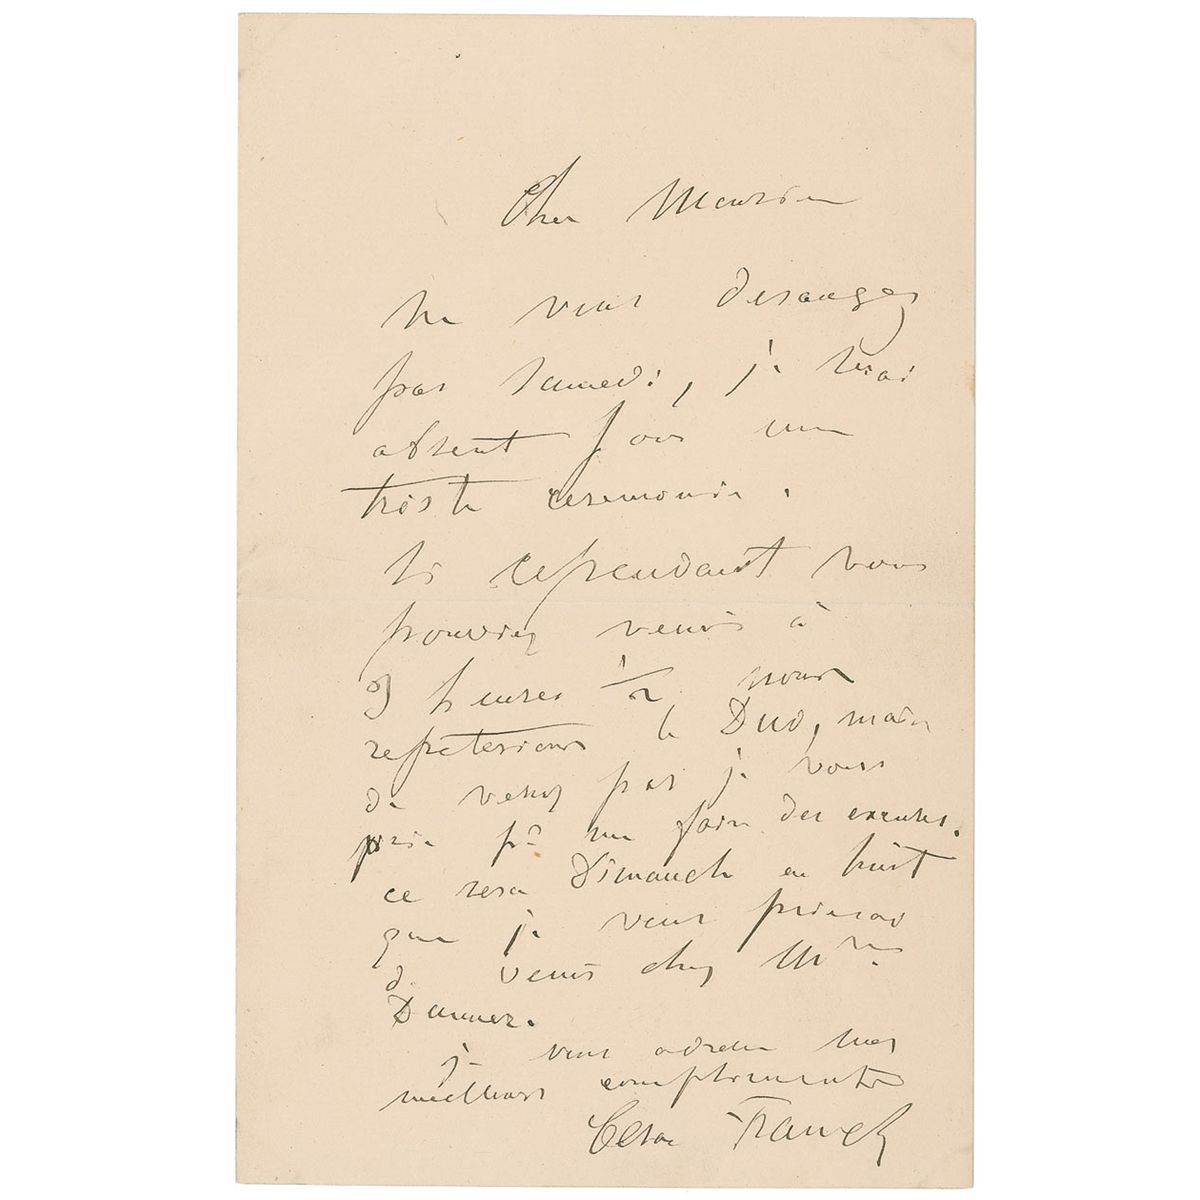 Cher Monsieur
Ne vous derangez
pas samedi, je serai
absent pour une
triste ceremonie.
Si cependant vous
pouviez venir à
heures 1/2 nous
repeterions le Duo, mais
ne venez pas je vous
prie pr me faire des excuses.
ce sera Dimanche en huit
que je vous prierai
de venir chez Mme
je vous adresse mes
meilleurs compliments
Cesar Franck